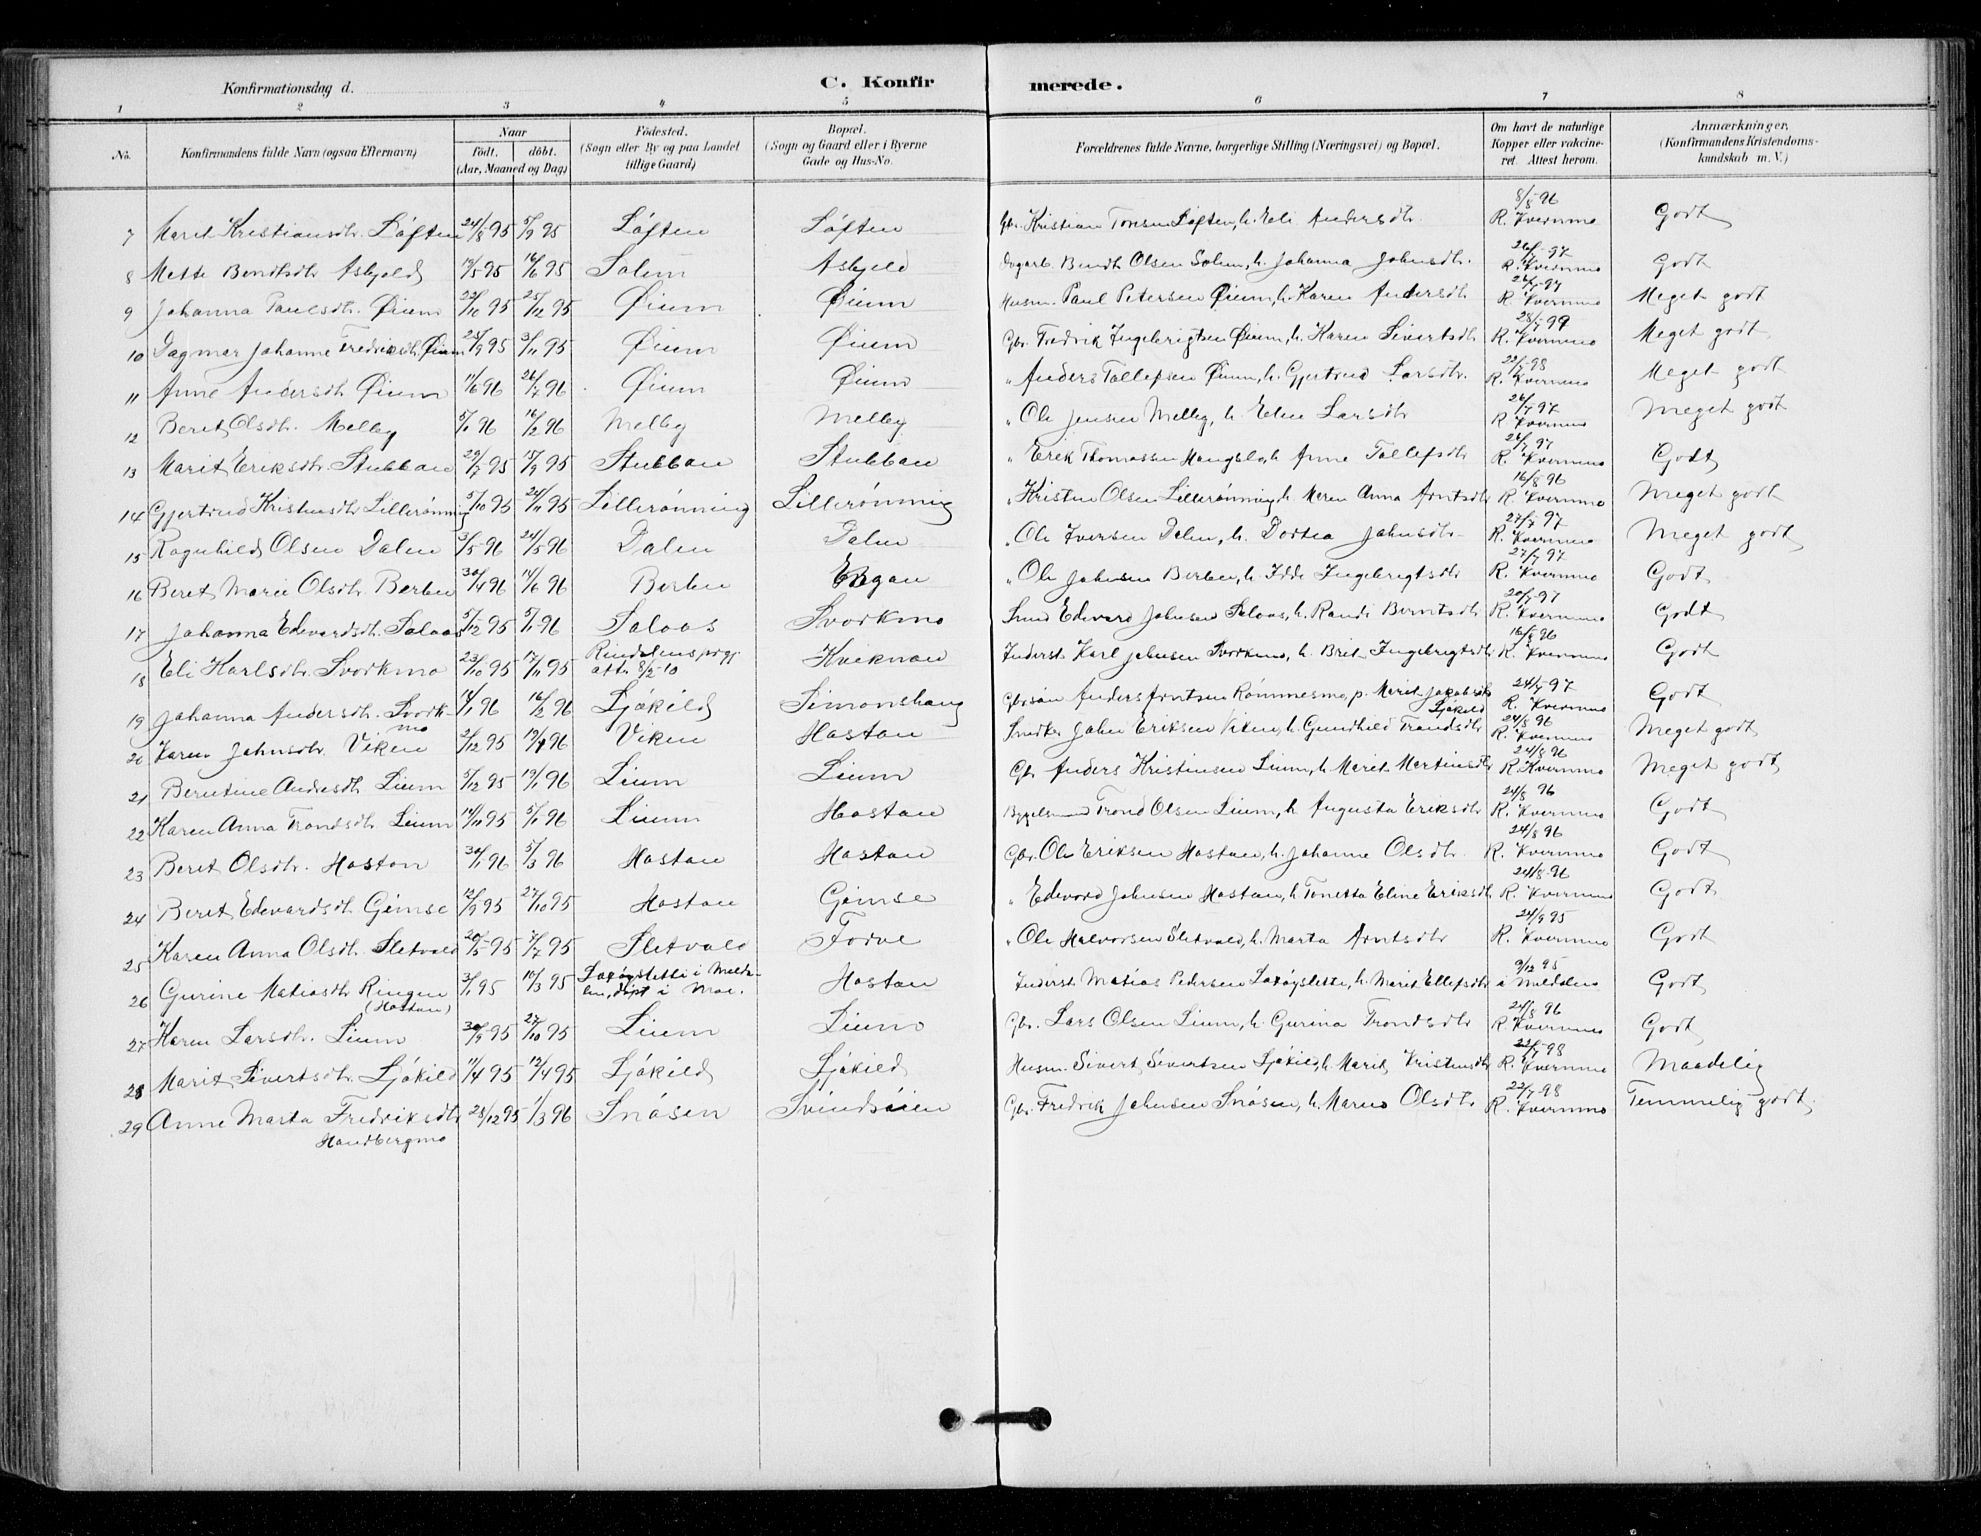 Konfirmationsdag d.
C. Konfirmerede.
1 2 3 4 5 6 7 8
No. Konfirmandens fulde Navn (ogsaa Efternavn) Naar født. døbt. (Aar, Maaned og Dag) Födested. (Sogn eller By og paa Landet tillige Gaard) Bopæl. (Sogn og Gaard eller i Byerne Gade og Hus-No. Forældrenes fulde Navne, borgerlige Stilling (Næringsvei) og Bopæl. Om havt de naturlige Kopper eller vakcineret. Attest herom. Anmærkninger. (Konfirmandens Kristendomskundskab m. V.)
7 Marit Kristiansdtr. Løften 24/8 95 5/9 95 Løften Løften Gbr. Kristian Tonsen Løften, h. Eli Andersdtr. 8/8 96 R. Kvernmo Godt
8 Mette Bendtsdtr Asbjeld 95 16/6 95 Solem Asbjeld Dagarb. Bendt Olsen Solem, h. Johanna Johnsdtr. 26/7 97 R. Kvernmo Godt
9 Johanna Paulsdtr. Øium 22/10 95 25/12 95 Øium Øium Husm. Paul Petersen Øium, h. Karen Andersdtr 26/7 97 R. Kvernmo Meget godt
10 Dagmar Johanne Fredriksdtr. Øium 25/9 95 3/11 95 Øium Øium Gbr. Fredrik Ingebrigtsen Øium, h. Karen Sivertsdtr 28/7 99 R. Kvernmo Meget godt
11 Anne Andersdtr Øium 11/6 96 26/7 96 Øium Øium " Anders Tollefsen Øium, h. Gjertrud Larsdtr. 22/7 98 R. Kvernmo Meget godt
12 Beret Olsdtr. Melby 5/1 96 16/2 96 Melby Melby " Ole Jensen Melby, h. Eline Larsdtr 26/7 97 R. Kvernmo Meget godt
13 Marit Eriksdtr Stubban 29/7 95 15/9 95 Stubban Stubban " Erik Thomassen Haugslo, h. Anne Tollefsdtr 26/7 97 R. Kvernmo Godt
14 Gjertrud Kristensdtr Lillerønning 5/10 95 24/11 95 Lillerønning Lillerønning " Kristen Olsen Lillerønning, h. Meren Anna Arntsdtr 16/8 96 R. Kvernmo Meget godt
15 Ragnhild Olsen Dalen 3/5 96 24/5 96 Dalen Dalen " Ole Iversen Dalen, h. Dortea Johnsdtr. 27/7 97 R. Kvernmo Meget godt
16 Beret Marie Olsdtr. Berben 30/4 96 14/6 96 Berben Engan " Ole Johnsen Berben, h. Idde Ingebrigtsdtr 27/7 97 R. Kvernmo Godt
17 Johanna Edvardsdtr. Solaas 5/12 95 5/1 96 Solaas Svorkmo Smed Edvard Johnsen Solaas, h. Randi Berntsdtr 20/7 97 R. Kvernmo Godt
18 Eli Karlsdtr. Svorkmo 23/10 95 17/11 95 Rindalens prgj. att. 8/2-10 Kviknan Inderst Karl Johnsen Svorkmo, h. Brit Ingebrigtsdtr 16/8 96 R. Kvernmo Godt
19 Johanna Andersdtr. Svorkmo 14/1 96 16/2 96 Ljøkild Simonshaug Gbrsøn Anders Arntsen Rømmesmo, p. Marit Jakobsdtr Ljøkild 24/7 97 R. Kvernmo Godt
20 Karen Johnsdtr. Viken 2/12 95 96 Viken Hoston Snedker John Eriksen Viken, h. Gundhild Trondsdtr 24/8 96 R. Kvernmo Meget godt
21 Berntine Andersdtr Lium 5/12 95 19/1 96 Lium Lium Gbr. Anders Kristensen Lium, h. Marit Martinsdtr 24/8 96 R. Kvernmo Meget godt
22 Karen Anna Trondsdtr. Lium 14/11 95 5/1 96 Lium Hoston Bygselmand Trond Olsen Lium, h. Augusta Eriksdtr 24/8 96 R. Kvernmo Godt
23 Beret Olsdtr. Hoston 30/1 96 5/3 96 Hoston Hoston Gbr. Ole Eriksen Hoston, h. Johanne Olsdtr. 24/8 96 R. Kvernmo Godt
24 Beret Edevardsdtr. Gimse 12/9 95 27/10 95 Hoston Gimse " Edevard Johnsen Hoston, h. Tonetta Eline Eriksdtr 24/8 96 R. Kvernmo Godt
25 Karen Anna Olsdtr. Sletvold 20/5 95 7/7 95 Sletvold Forve " Ole Halvorsen Sletvold, h. Marta Arntsdtr 24/9 95 R. Kvernmo Godt
26 Gurine Matiasdtr Ringen (Hoston) 3/1 95 10/3 95 Laxøyslette i Meldalen, døpt i Moe. Hoston Inderst Matias Pedersen Laxøyslette, h. Marit Ellefsdtr 9/12 95 i Meldalen Godt
27 Karen Larsdtr. Lium 30/9 95 27/10 95 Lium Lium Gbr. Lars Olsen Lium, h. Gurina Trondsdtr 24/8 96 R. Kvernmo Godt
28 Marit Sivertsdtr. Ljøkild 11/4 95 12/4 95 Ljøkild Ljøkild Husm. Sivert Sivertsen Ljøkild, h. Marit Kristensdtr 22/7 98 R. Kvernmo Maadelig
29 Anne Marta Fredriksdtr Handbergmo 28/12 95 1/3 96 Snøsen Svindsøien Gbr. Fredrik Johnsen Snøsen, h. Maren Olsdtr. 22/7 98 R. Kvernmo Temmelig godt.